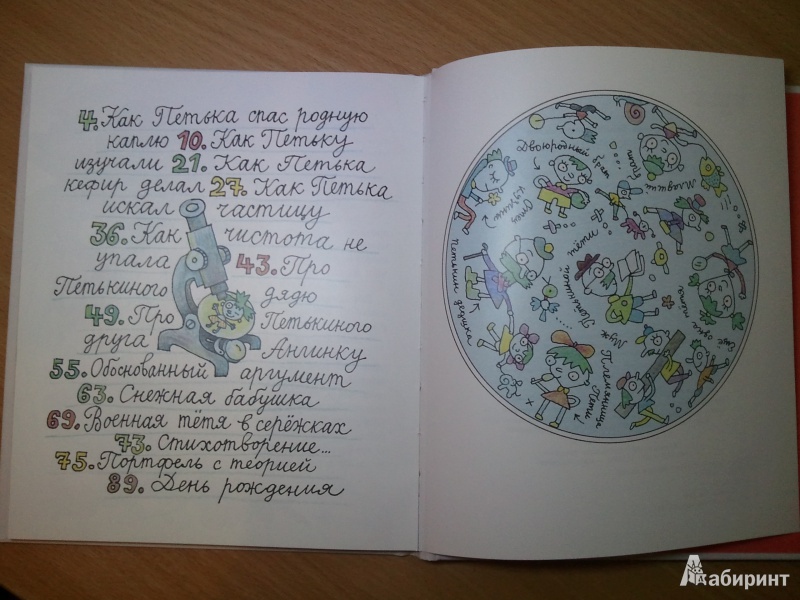 4. Как Петька спас родную
каплю 10. Как Петьку
изучали 21. Как Петька
кефир делал 27. Как Петька
искал частицу
36. Как чистота не
упала 43. Про
Петькиного дядю
49. Про Петькиного
друга Ангинку
55. Обоснованный аргумент
63. Снежная бабушка
69. Военная тётя в серёжках
73. Стихотворение...
75. Портфель с теорией
89. День рождения
Двоюродный брат
Младший
Отец
тёти
Петькин дедушка
Муж
Племянница
Пети
Лабиринт